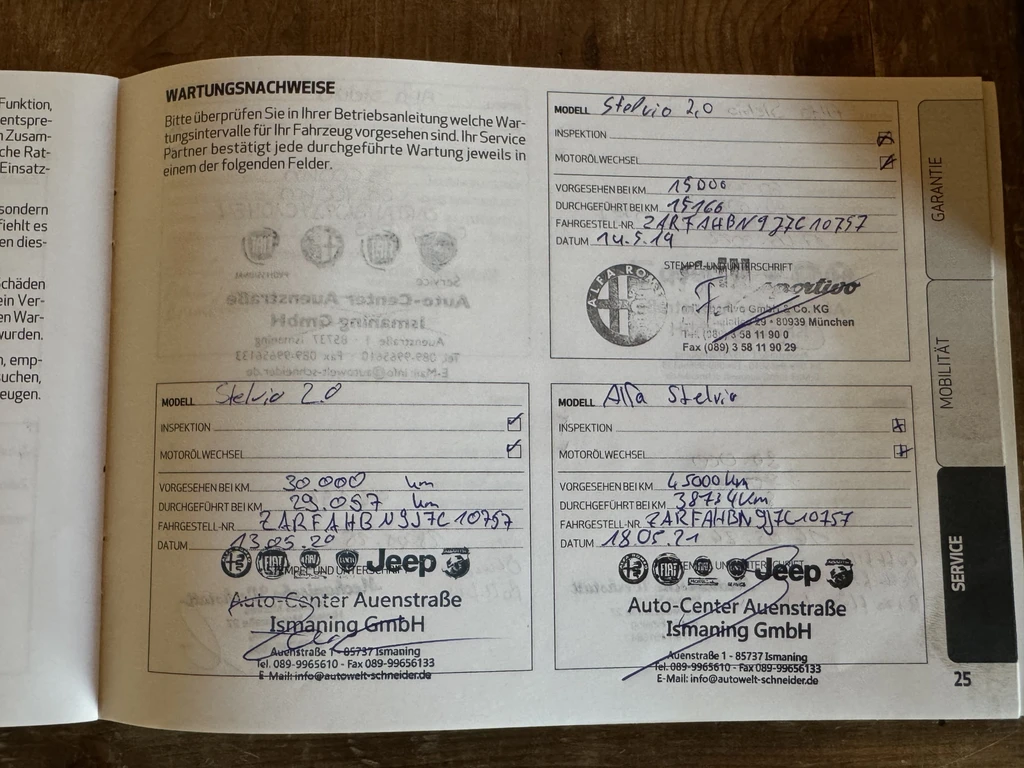 Funktion,
entspre-
n Zusam-
che Rat-
Einsatz-
sondern
fiehlt es
en dies-
chäden
ein Ver-
en War-
wurden.
n, emp-
suchen,
eugen.
WARTUNGSNACHWEISE
Bitte überprüfen Sie in Ihrer Betriebsanleitung welche War-
tungsintervalle für Ihr Fahrzeug vorgesehen sind. Ihr Service
Partner bestätigt jede durchgeführte Wartung jeweils in
einem der folgenden Felder.
MODELL Stelvio 2,0
INSPEKTION
MOTORÖLWECHSEL
VORGESEHEN BEI KM 15000
DURCHGEFÜHRT BEI KM 15166
FAHRGESTELL-NR. ZARFAHBN9J7C10757
DATUM 14.5.19
STEMPEL UND UNTERSCHRIFT
ALFA ROMEO
GmbH & Co. KG
29 • 80939 München
Tel. (089) 3 58 11 90 0
Fax (089) 3 58 11 90 29
MODELL Stelvio 2.0
INSPEKTION
MOTORÖLWECHSEL
VORGESEHEN BEI KM 30.000 km
DURCHGEFÜHRT BEI KM 29.097 km
FAHRGESTELL-NR. ZARFAHBN9J7C10757
DATUM 13.05.20
STEMPEL UND UNTERSCHRIFT
FIAT Jeep
Auto-Center Auenstraße
Ismaning GmbH
Auenstraße 1 - 85737 Ismaning
Tel. 089-9965610 - Fax 089-99656133
E-Mail: info@autowelt-schneider.de
MODELL Alfa Stelvio
INSPEKTION
MOTORÖLWECHSEL
VORGESEHEN BEI KM 45000km
DURCHGEFÜHRT BEI KM 38734km
FAHRGESTELL-NR. ZARFAHBN9J7C10757
DATUM 18.05.21
STEMPEL UND UNTERSCHRIFT
FIAT Jeep
Auto-Center Auenstraße
Ismaning GmbH
Auenstraße 1 - 85737 Ismaning
Tel. 089-9965610 - Fax 089-99656133
E-Mail: info@autowelt-schneider.de
GARANTIE
MOBILITÄT
SERVICE
25